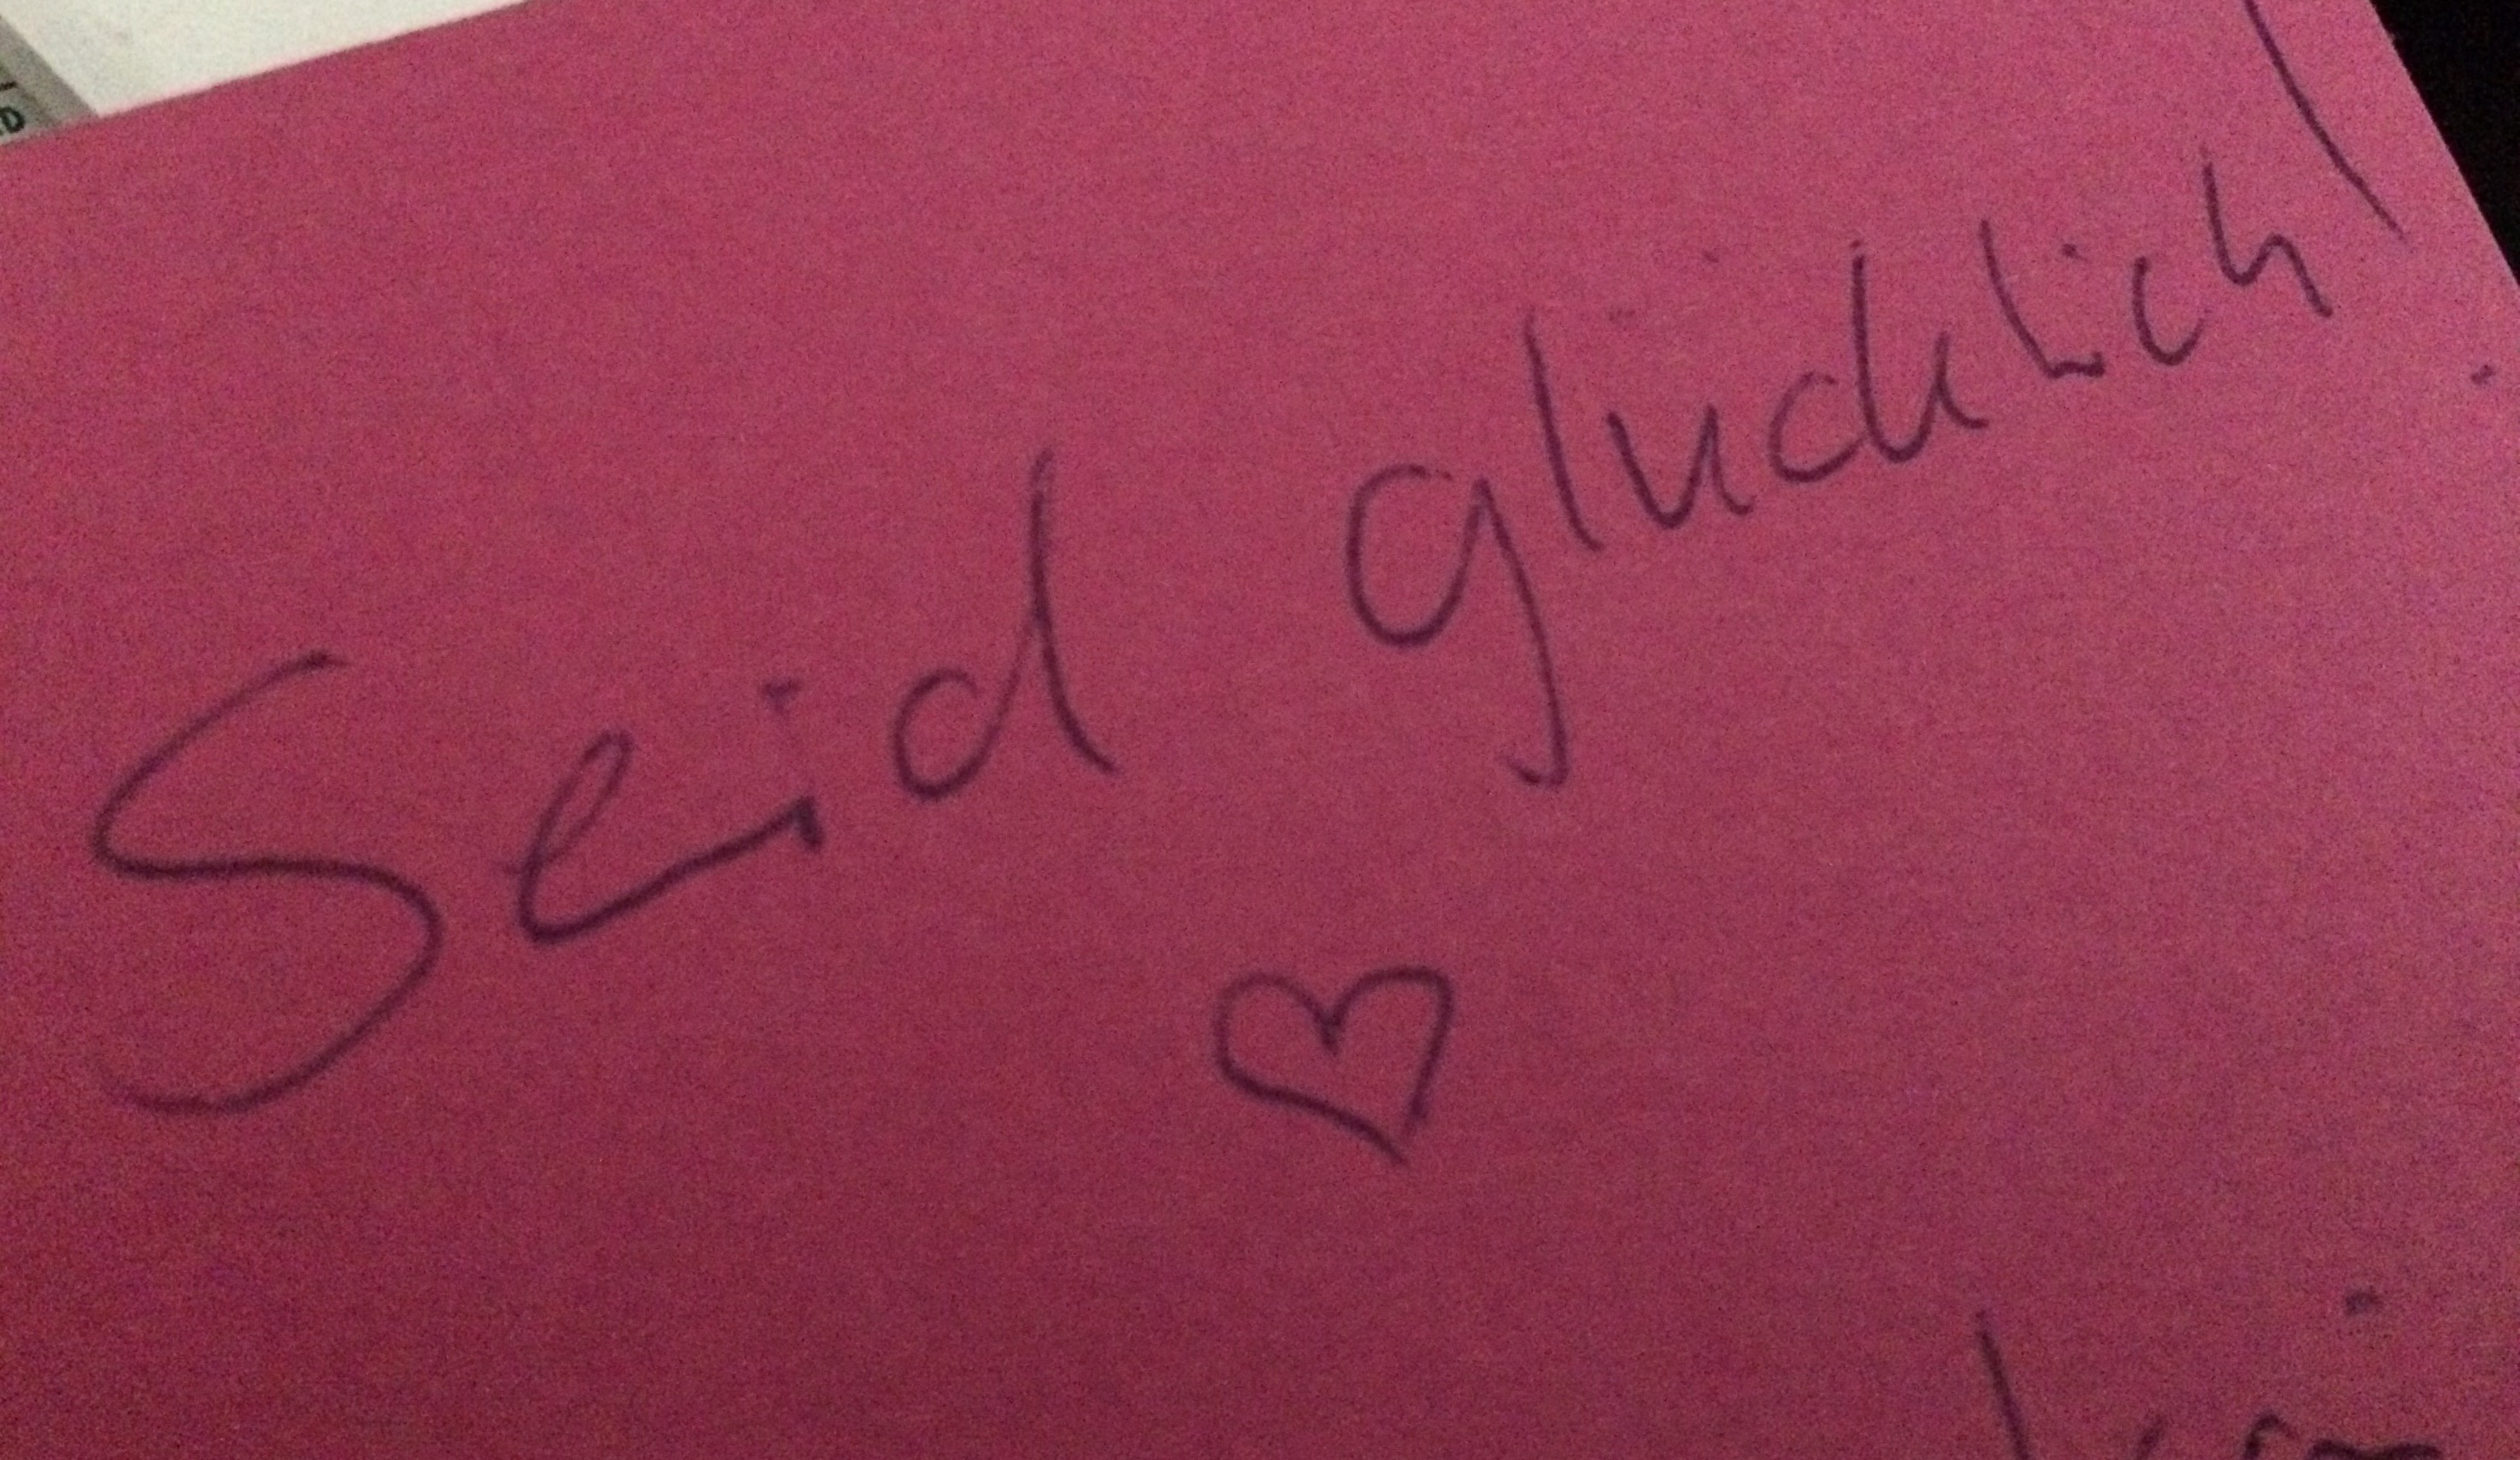 Seid glücklich!